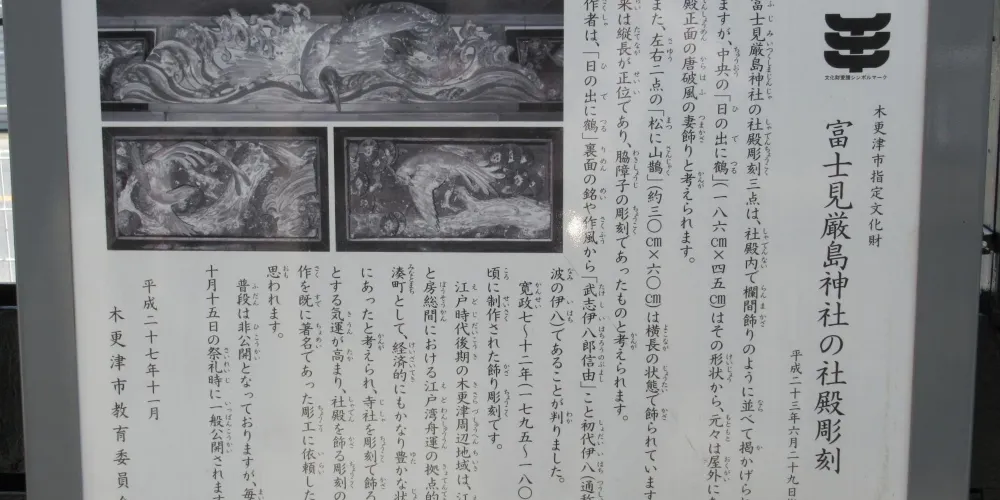 文化財愛護シンボルマーク
木更津市指定文化財
富士見厳島神社の社殿彫刻
平成二十三年六月二十九日
富士見厳島神社の社殿彫刻三点は、社殿内で欄間飾りのように並べて掲かげら
ますが、中央の「日の出に鶴」(一八六㎝×四五㎝)はその形状から、元々は屋外に
殿正面の唐破風の妻飾りと考えられます。
また、左右二点の「松に山鵲」(約三〇㎝×六〇㎝)は横長の状態で飾られています
来は縦長が正位であり、脇障子の彫刻であったものと考えられます。
作者は、「日の出に鶴」裏面の銘や作風から「武志伊八郎信由」こと初代伊八(通称
波の伊八)であることが判りました。
寛政七~十二年(一七九五~一八〇
頃に制作された飾り彫刻です。
江戸時代後期の木更津周辺地域は、江
と房総間における江戸湾舟運の拠点的
湊町として、経済的にもかなり豊かな状
にあったと考えられ、寺社を彫刻で飾る
とする気運が高まり、社殿を飾る彫刻の
作を既に著名であった彫工に依頼した
思われます。
普段は非公開となっておりますが、毎
十月十五日の祭礼時に一般公開されます
平成二十七年十一月
木更津市教育委員